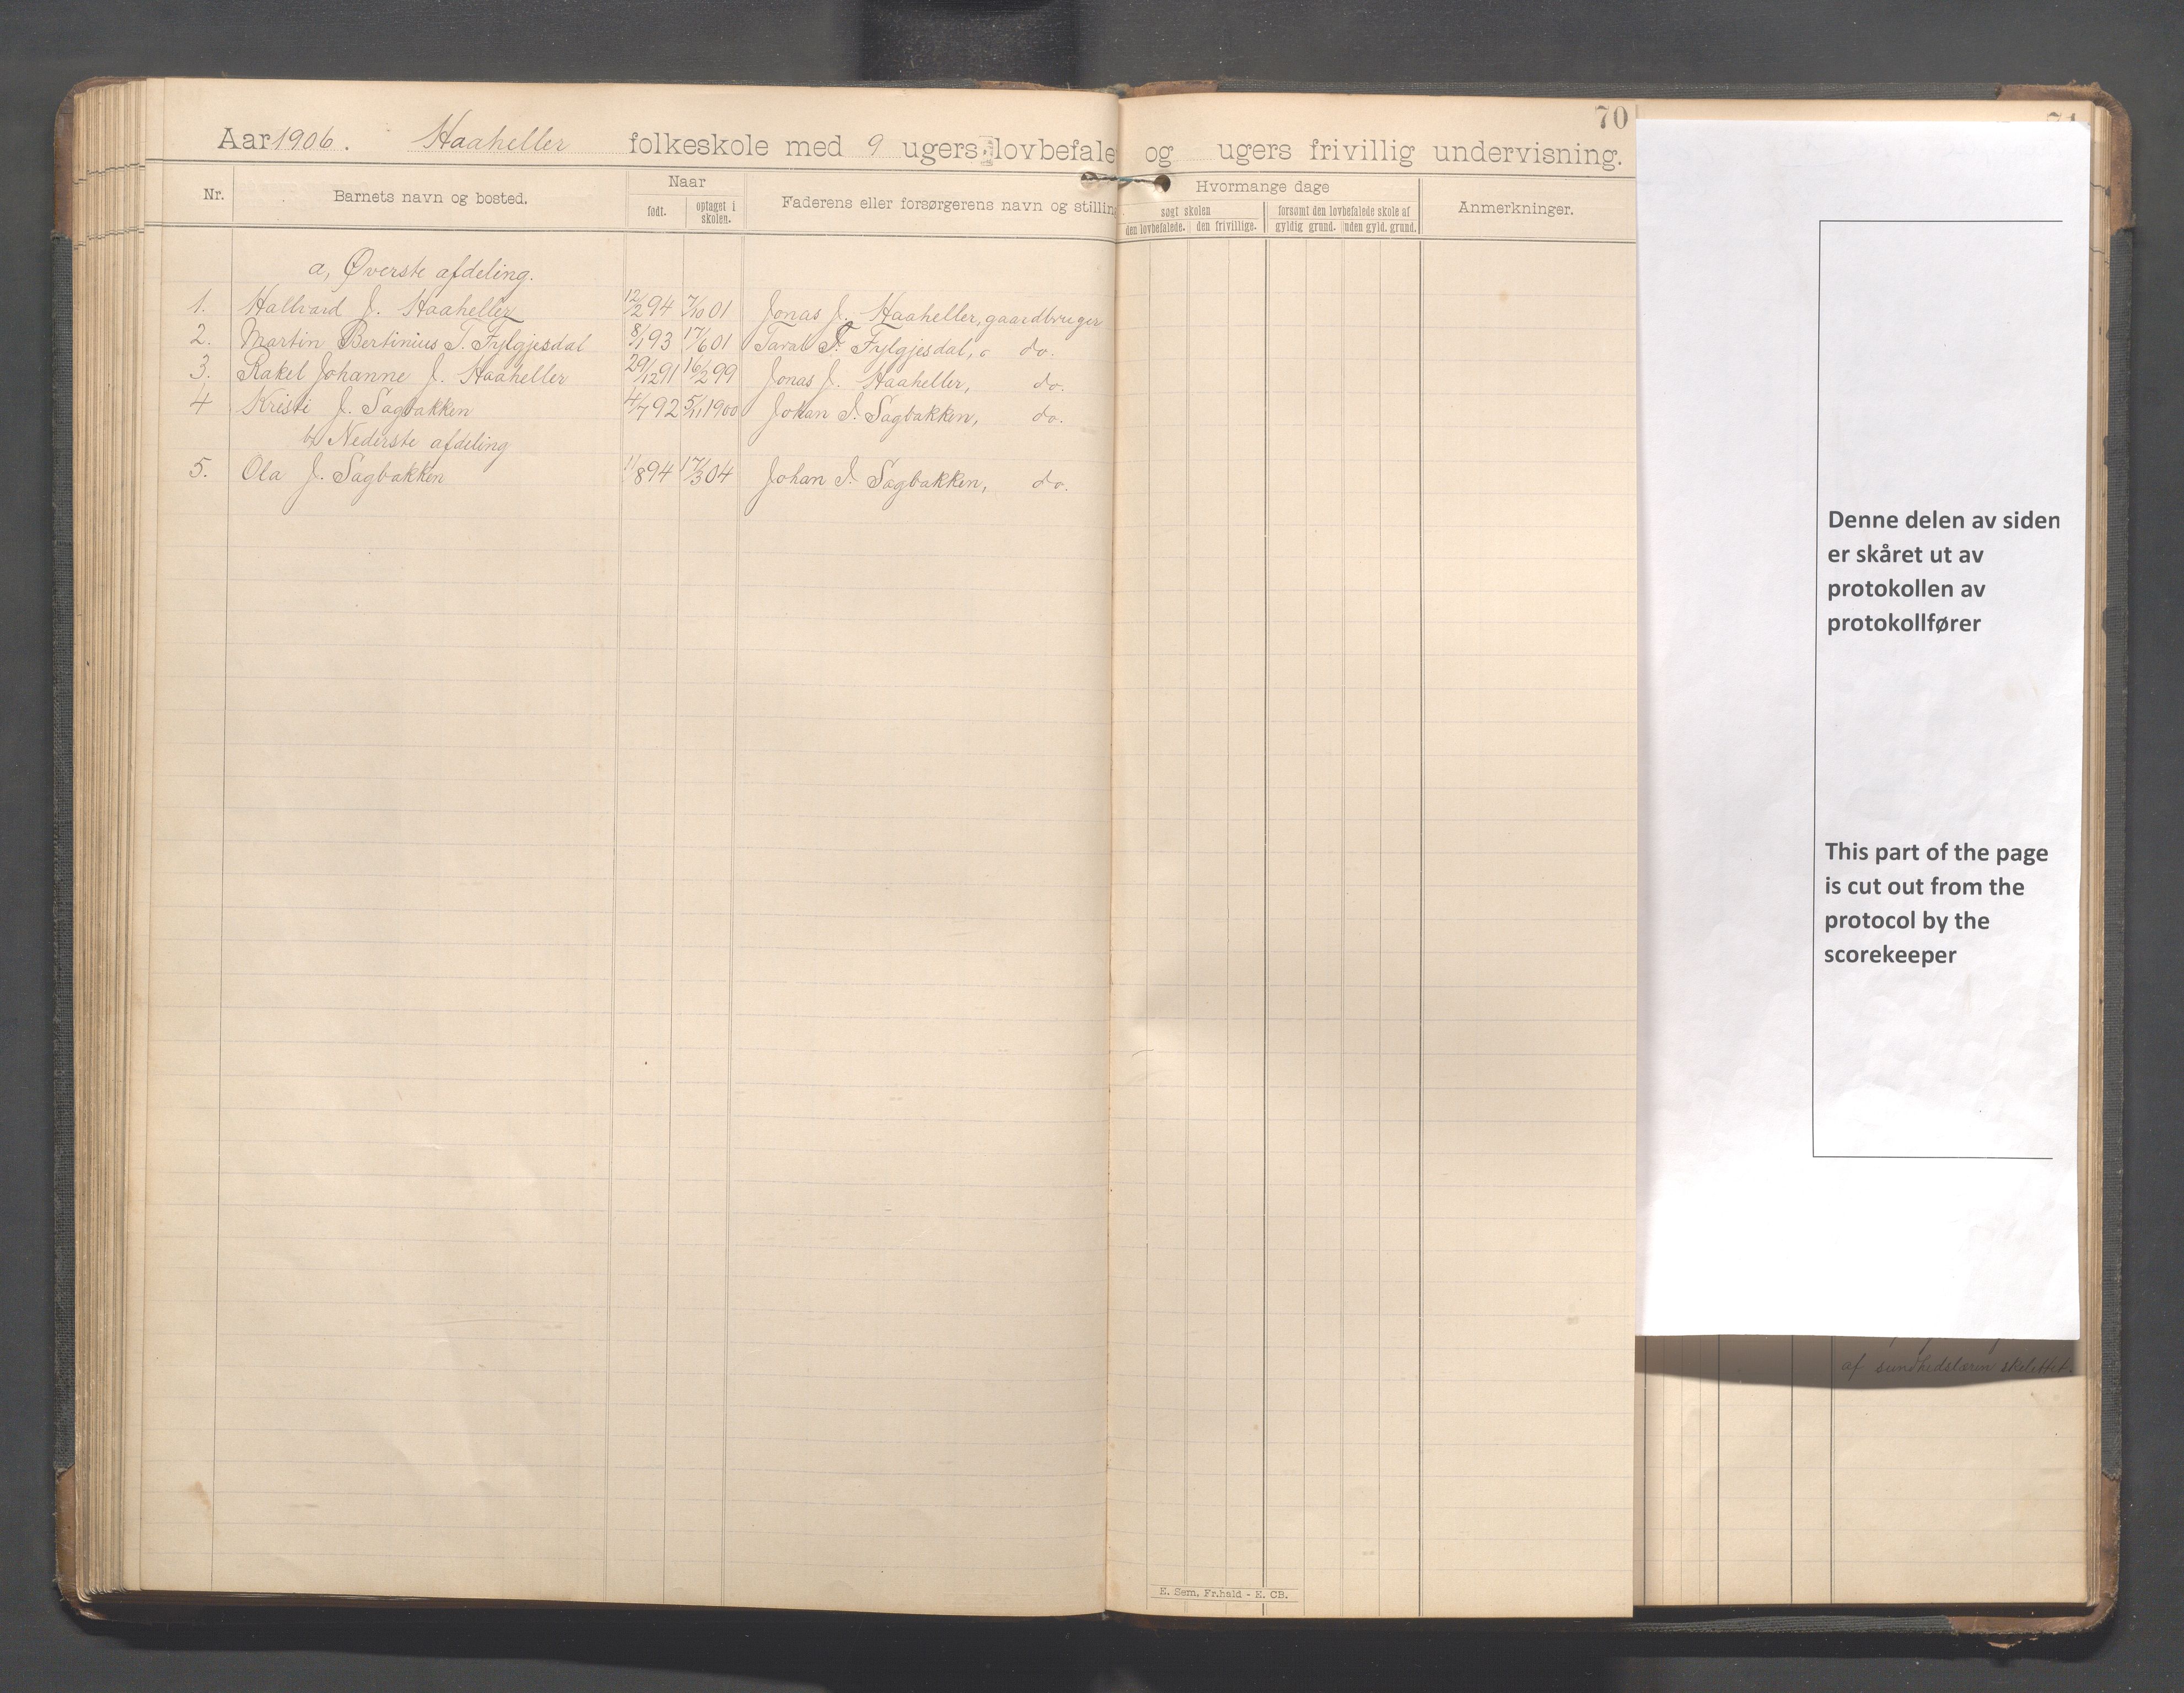 70
Aar 1906. Haaheller folkeskole med 9 ugers lovbefale og ugers frivillig undervisning.
Nr. Barnets navn og bosted. Naar Faderens eller forsørgerens navn og stilling Hvormange dage Anmerkninger.
født. optaget i skolen. søgt skolen forsømt den lovbefalede skole af
den lovbefalede. den frivillige. gyldig grund. uden gyld. grund.
a, Øverste afdeling.
1. Hallvard J. Haaheller 12/2 94 7/10 01 Jonas J. Haaheller, gaardbruger
2. Martin Bertinius T. Fylgjesdal 8/1 93 17/6 01 Taral T. Fylgjesdal, do.
3. Rakel Johanne J. Haaheller 29/12 91 16/2 99 Jonas J. Haaheller, do.
4 Kristi J. Sagbakken 4/7 92 5/11 1900 Johan I. Sagbakken, do.
b, Nederste afdeling
5. Ola J. Sagbakken 11/8 94 17/3 04 Johan I. Sagbakken, do.
E. Sem, Fr.hald - E. CB.
71
Denne delen av siden
er skåret ut av
protokollen av
protokollfører
This part of the page
is cut out from the
protocol by the
scorekeeper
af sundhedslæren skelettet